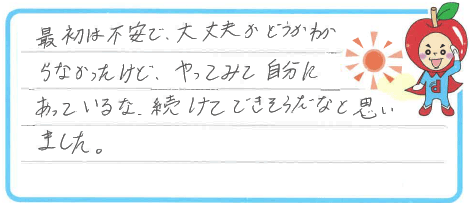 最初は不安で、大丈夫かどうかわか
らなかったけど、やってみて自分に
あっているな、続けてできそうだなと思い
ました。
d